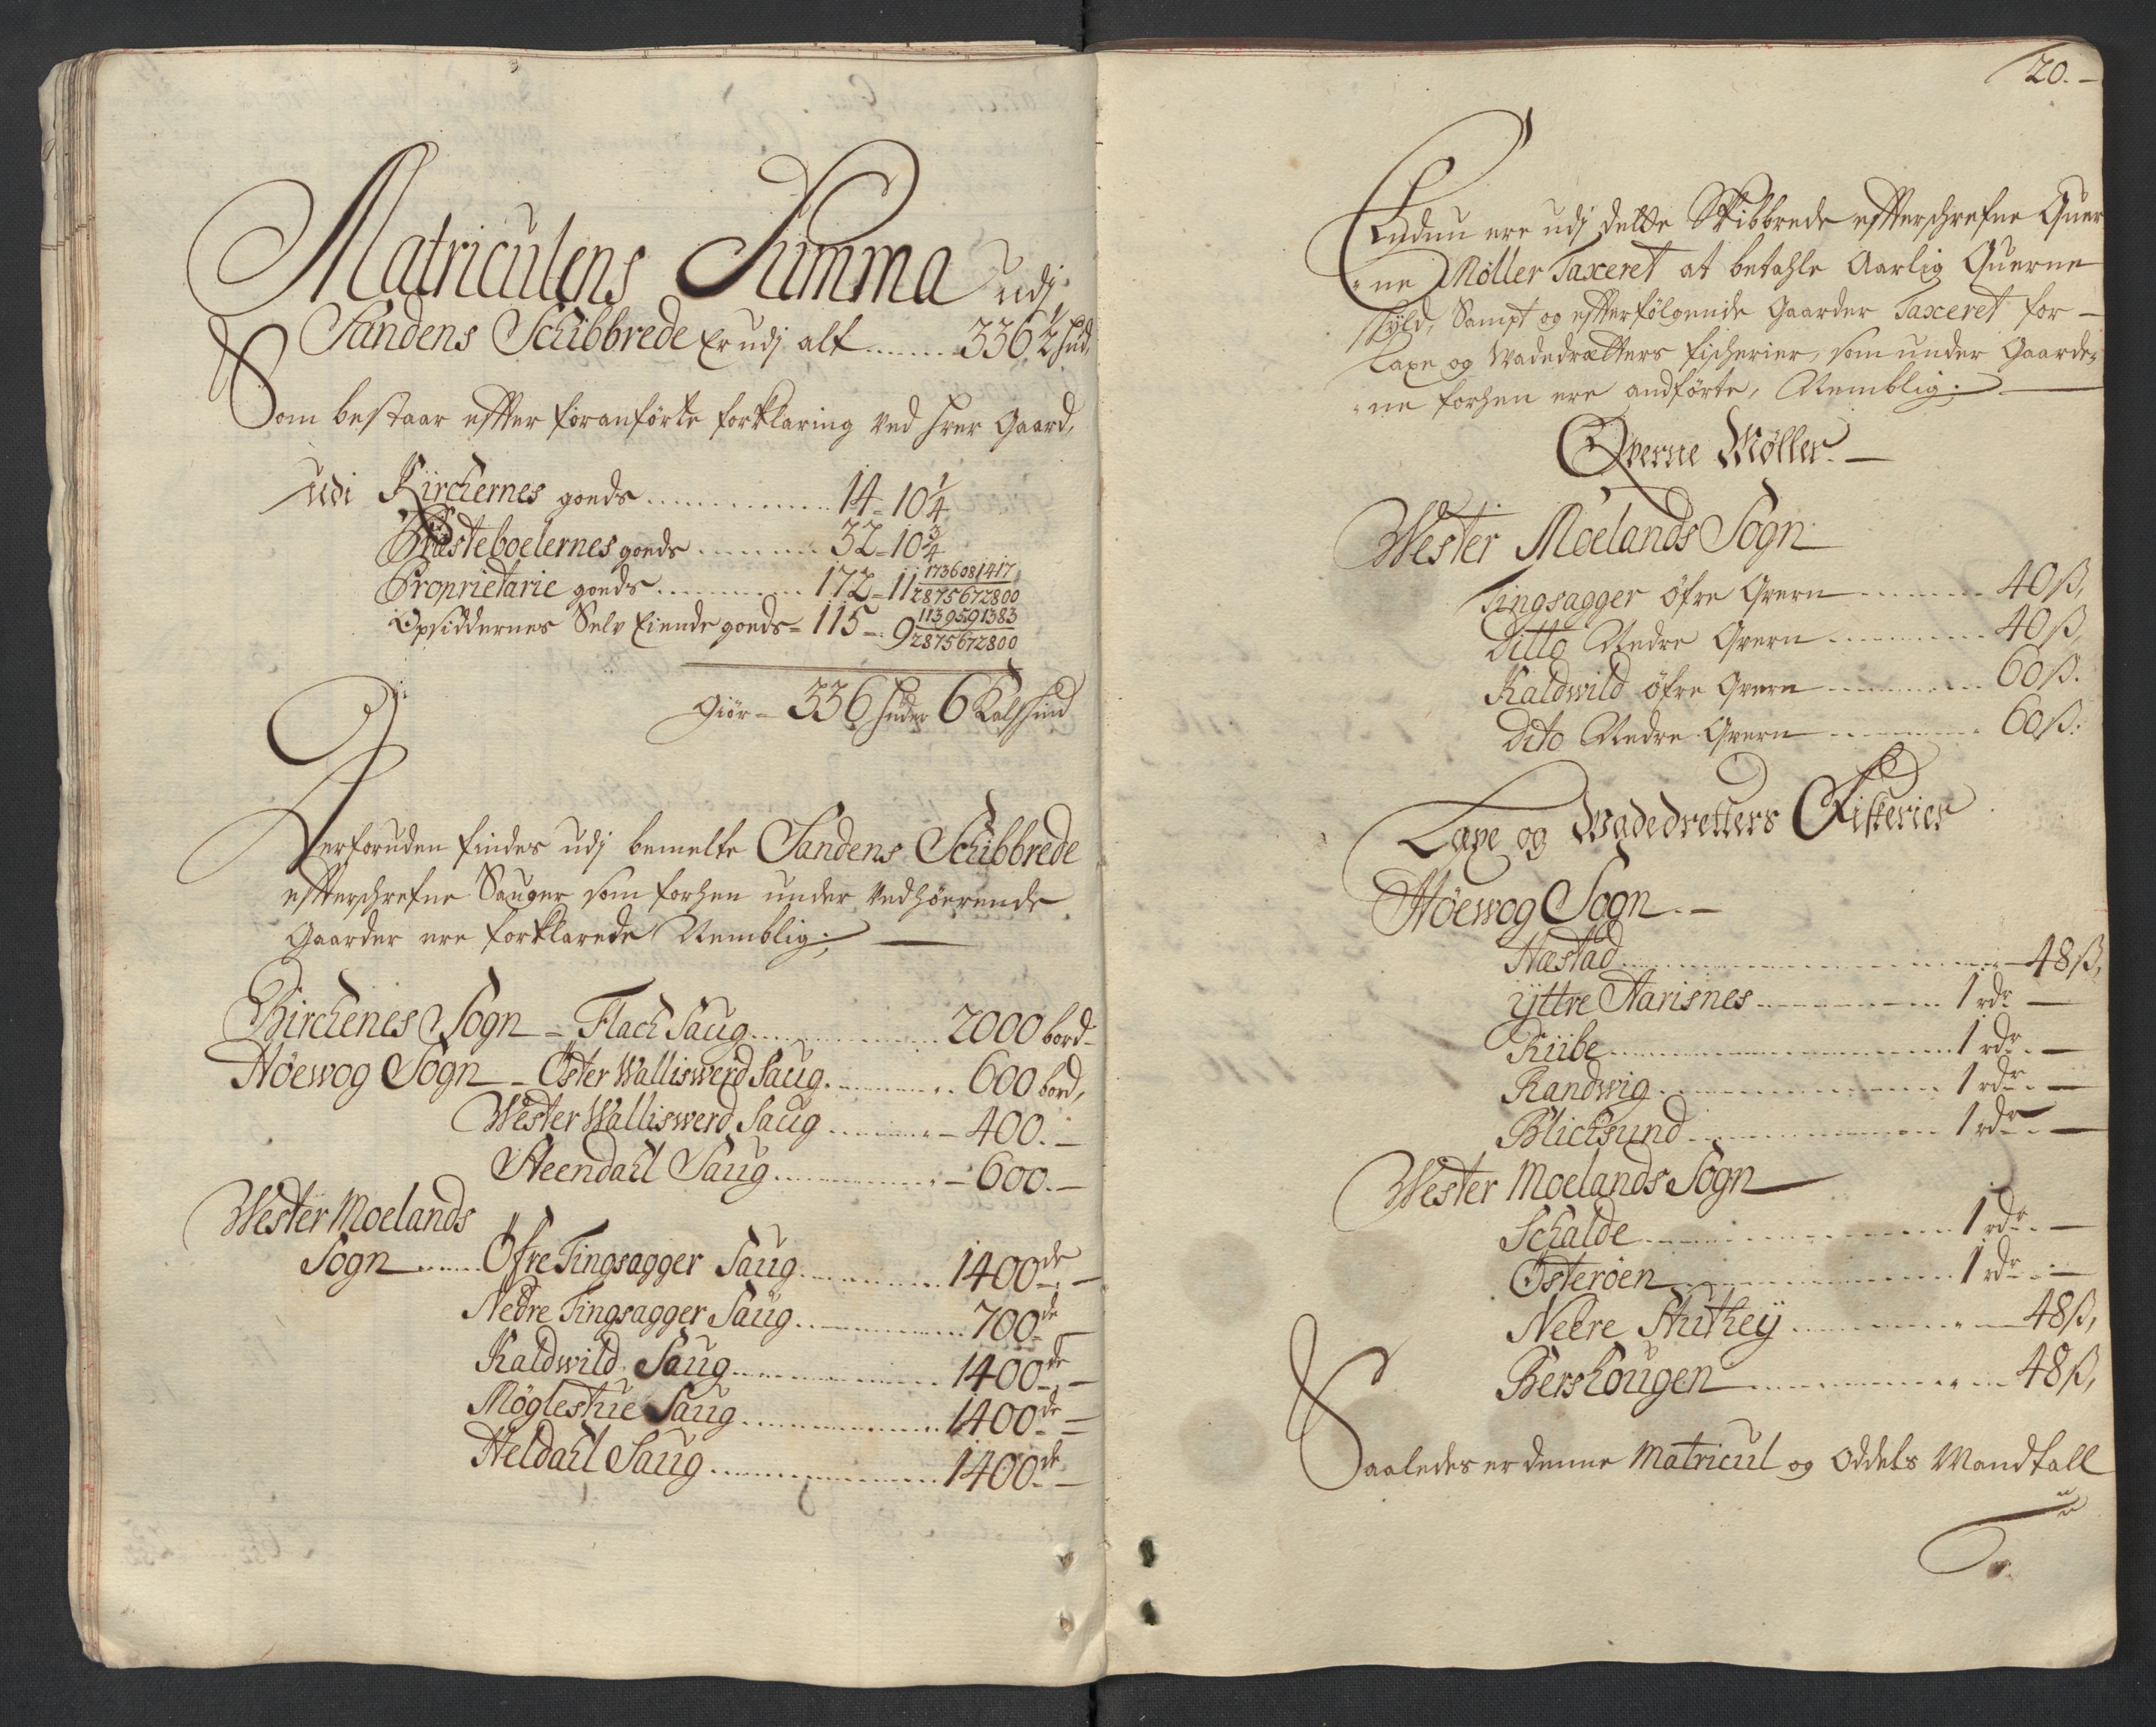 Matriculens Summa udj
Sandens Schibbrede Er udj alt ....... 336 1/2 hud,
Som bestaar effter foranførte forklaring ved hver Gaard,
udi Kirchernes goeds ............. 14 - 10 1/4
Præsteboelernes goeds ......... 32 - 10 3/4
Proprietarie goeds ............. 172 - 11 1736081417/2875672800
Opsiddernes Selv Eiende goeds - 115 - 9 1139591383/2875672800
giør - 336 huder 6 Kalfskind
Herforuden findes udj bemelte Sandens Schibbrede
effterschrefne Sauger som forhen under vedhøerende
Gaarder ere forklarede Nemblig:,
Birchenes Sogn - Flach Saug ............. 2000 bord
Høewog Sogn - Öster Walliswerd Saug ......... 600 bord,
Wester Walliswerd Saug ......... 400. -
Steendahl Saug ......... - 600. -
Wester Moelands
Sogn ...... Öfre Tingsagger Saug ......... 1400 de -
Nedre Tingsagger Saug ......... 700 de -
Kaldwild Saug ......... 1400 de -
Møglestue Saug ......... 1400 de -
Heldahl Saug ......... 1400 de -
20. -
Endnu ere udj dette Skibbrede effterschrefne Quer
= ne Møller Taxeret at betahle Aarlig Querne
skyld, Sampt og effterfølgende Gaarder Taxeret for -
Laxe og Wadedrætters fischerier, som under Gaarde-
= ne forhen ere andførte, Nemblig:,
Qverne Møller. -
Wester Moelands Sogn
Tingsagger øfre Qvern ......... 40 ß,
Ditto Nedre Qvern ......... 40 ß,
Kaldwild øfre Qvern ......... 60 ß.
Dito Nedre Qvern ......... 60 ß.
Laxe og Wadedretters Fiskerier
Høewog Sogn. -
Næstad ......... 48 ß,
ÿttre Aarisnes ......... 1 rdr -
Kiibe ......... 1 rdr. -
Randwig ......... 1 rdr. -
Blichsund ......... 1 rdr. -
Wester Moelands Sogn
Schalde ......... 1 rdr. -
Österöen ......... 1 rdr. -
Nedre Huthey ......... 48 ß,
Bershougen ......... 48 ß,
Saaledes er denne Matricul og Oddels Mandtall